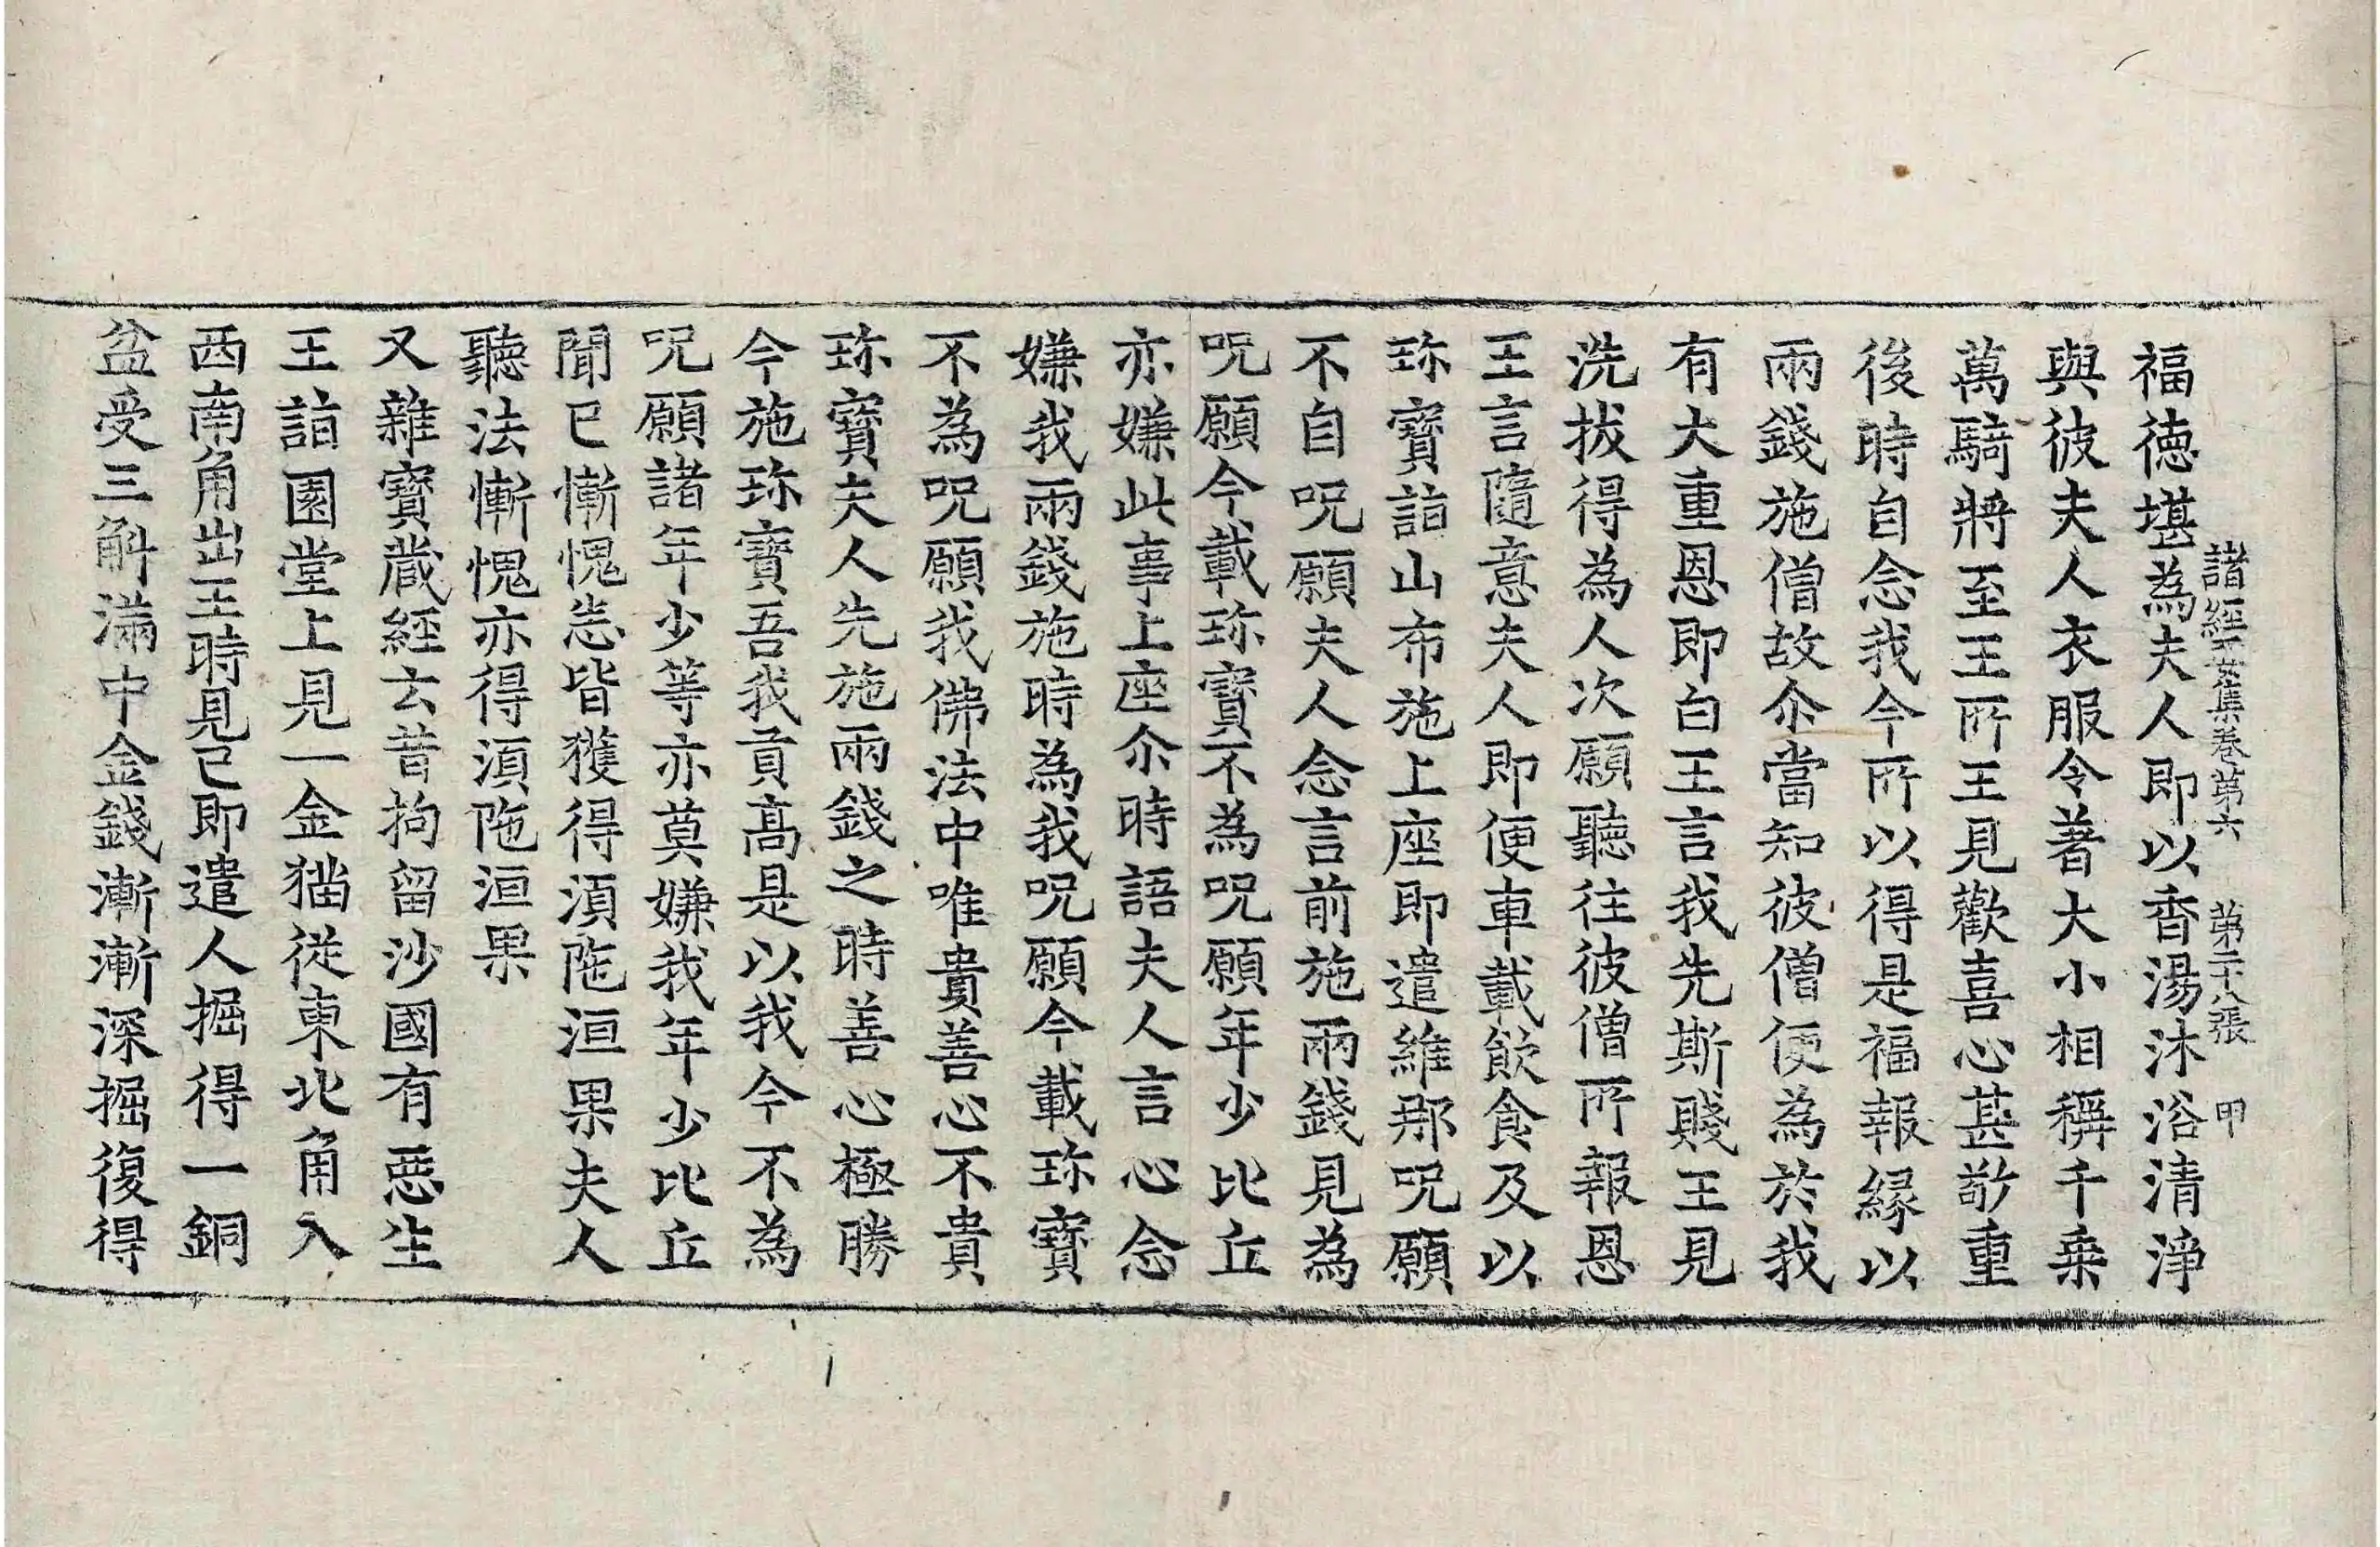 諸經要集卷第六 第二十八張 甲
福德堪為夫人即以香湯沐浴清淨
與彼夫人衣服令著大小相稱千乗
萬騎將至王所王見歡喜心甚敬重
後時自念我今所以得是福報緣以
兩錢施僧故尒當知彼僧便為於我
有大重恩即白王言我先斯賤王見
洗拔得為人次願聽往彼僧所報恩
王言隨意夫人即便車載飲食及以
珎寶詣山布施上座即遣維那呪願
不自呪願夫人念言前施兩錢見為
呪願今載珎寶不為呪願年少比丘
亦嫌此事上座尒時語夫人言心念
嫌我兩錢施時為我呪願今載珎寶
不為呪願我佛法中唯貴善心不貴
珎寶夫人先施兩錢之時善心極勝
今施珎寶吾我貢髙是以我今不為
呪願諸年少等亦莫嫌我年少比丘
聞已慚愧悉皆獲得湏陁洹果夫人
聽法慚愧亦得湏陁洹果
又雜寶蔵經云昔拘留沙國有惡生
王詣園堂上見一金猫従東北角入
西南角出王時見已即遣人掘得一銅
盆受三斛滿中金錢漸漸深掘復得